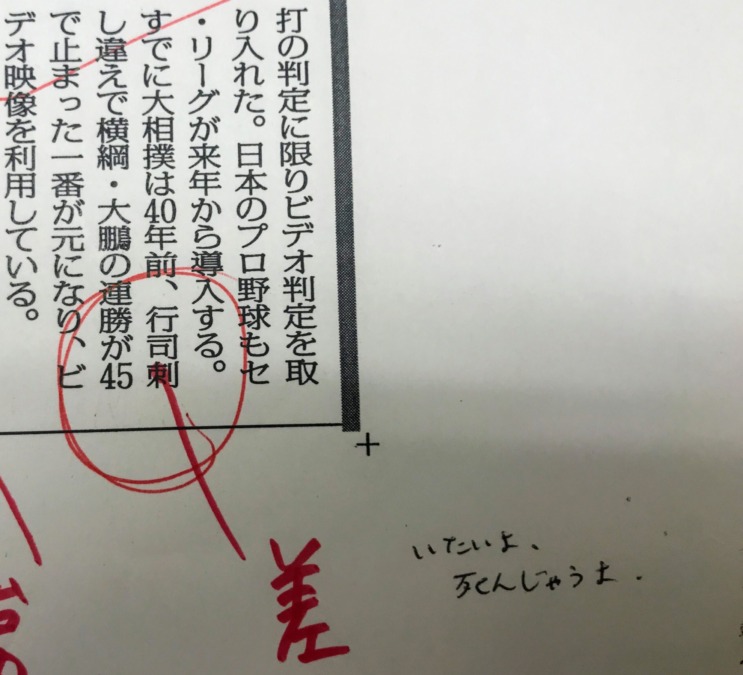 打の判定に限りビデオ判定を取
り入れた。日本のプロ野球もセ
・リーグが来年から導入する。
すでに大相撲は40年前、行司刺
し違えで横綱・大鵬の連勝が45
で止まった一番が元になり、ビ
デオ映像を利用している。
差
いたいよ、
死んじゃうよ.